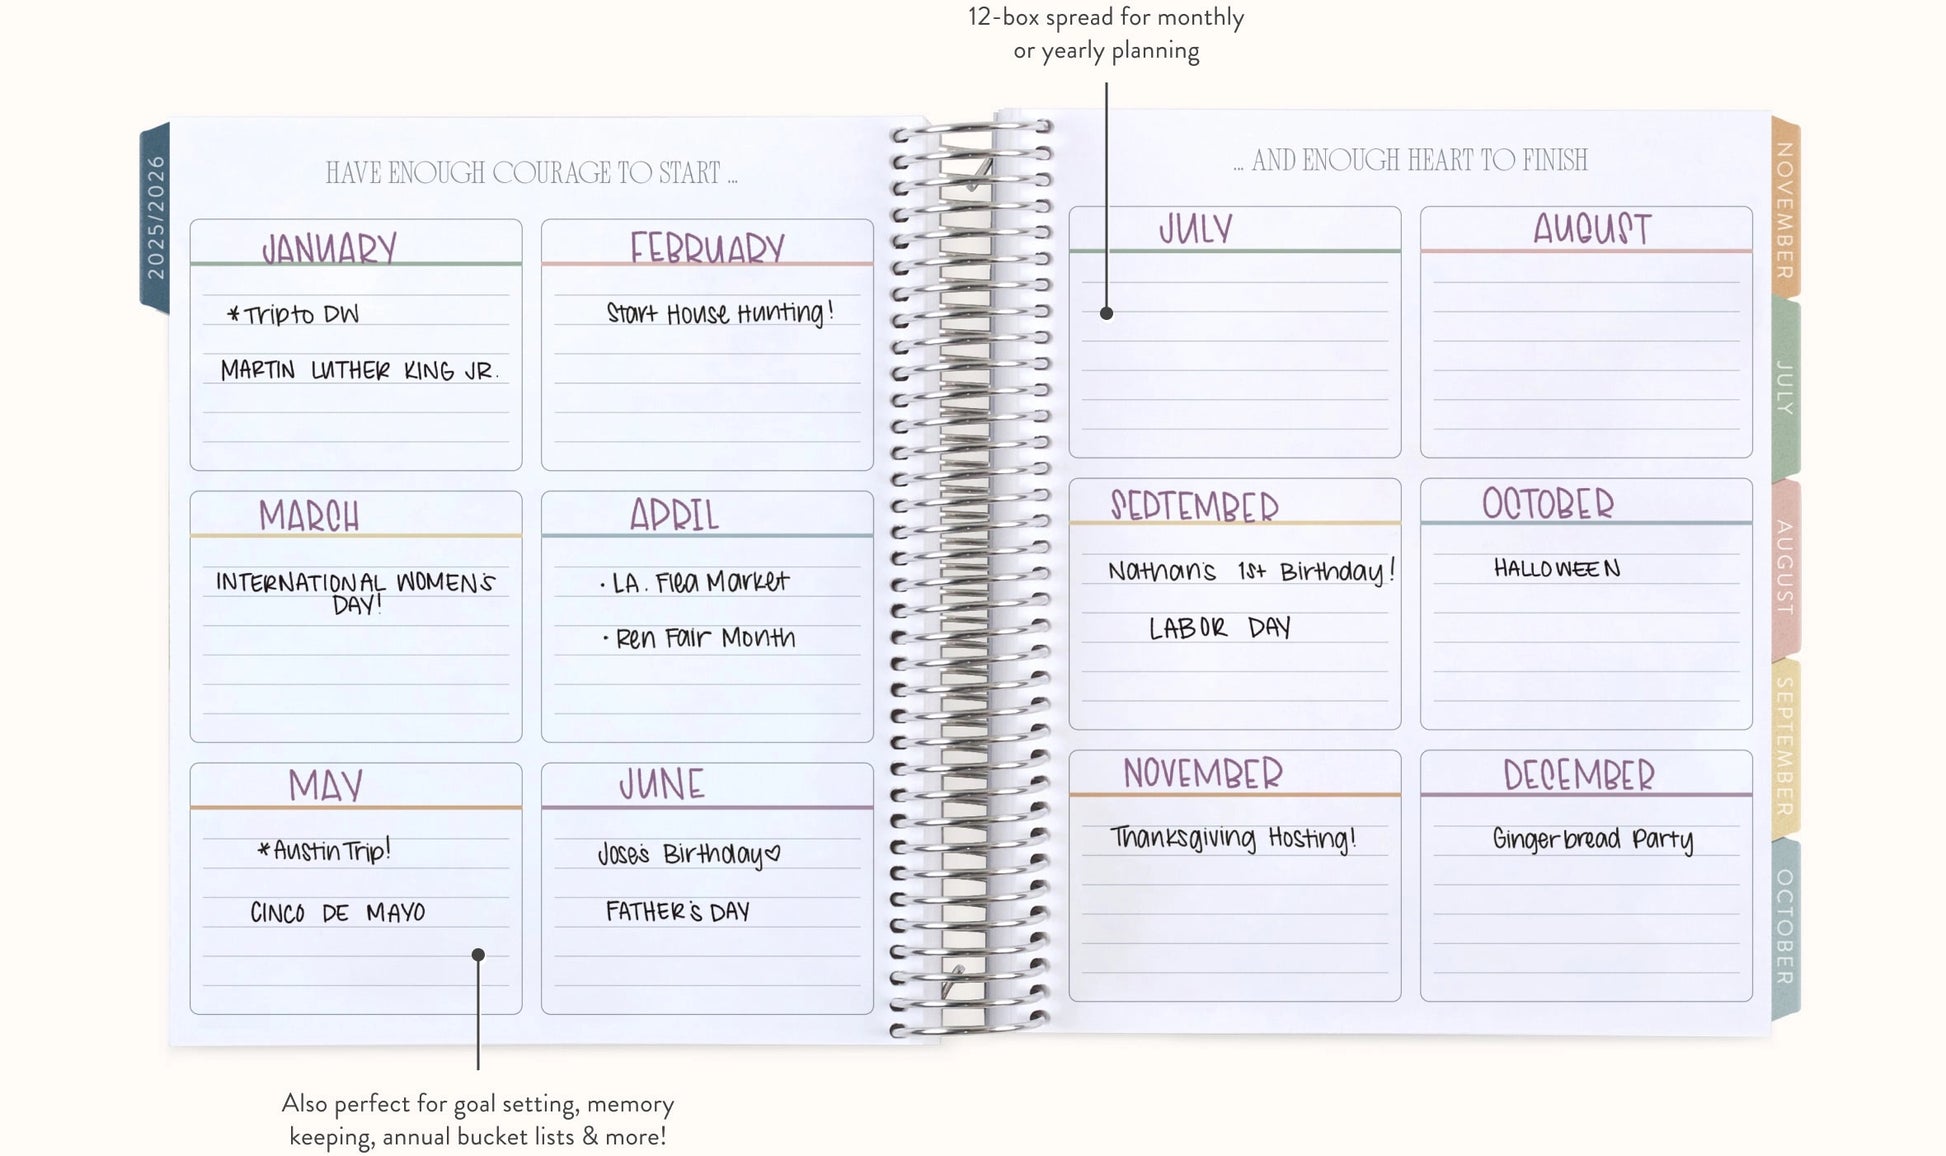 12-box spread for monthly
or yearly planning
2025/2026
HAVE ENOUGH COURAGE TO START ...
JANUARY
*Trip to DW
MARTIN LUTHER KING JR.
FEBRUARY
Start House Hunting!
MARCH
INTERNATIONAL WOMEN'S
DAY!
APRIL
• LA. Flea Market
• Ren Fair Month
MAY
*Austin Trip!
CINCO DE MAYO
JUNE
Jose's Birthday♡
FATHER'S DAY
... AND ENOUGH HEART TO FINISH
JULY
AUGUST
SEPTEMBER
Nathan's 1st Birthday!
LABOR DAY
OCTOBER
HALLOWEEN
NOVEMBER
Thanksgiving Hosting!
DECEMBER
Gingerbread Party
NOVEMBER
JULY
AUGUST
SEPTEMBER
OCTOBER
Also perfect for goal setting, memory
keeping, annual bucket lists & more!